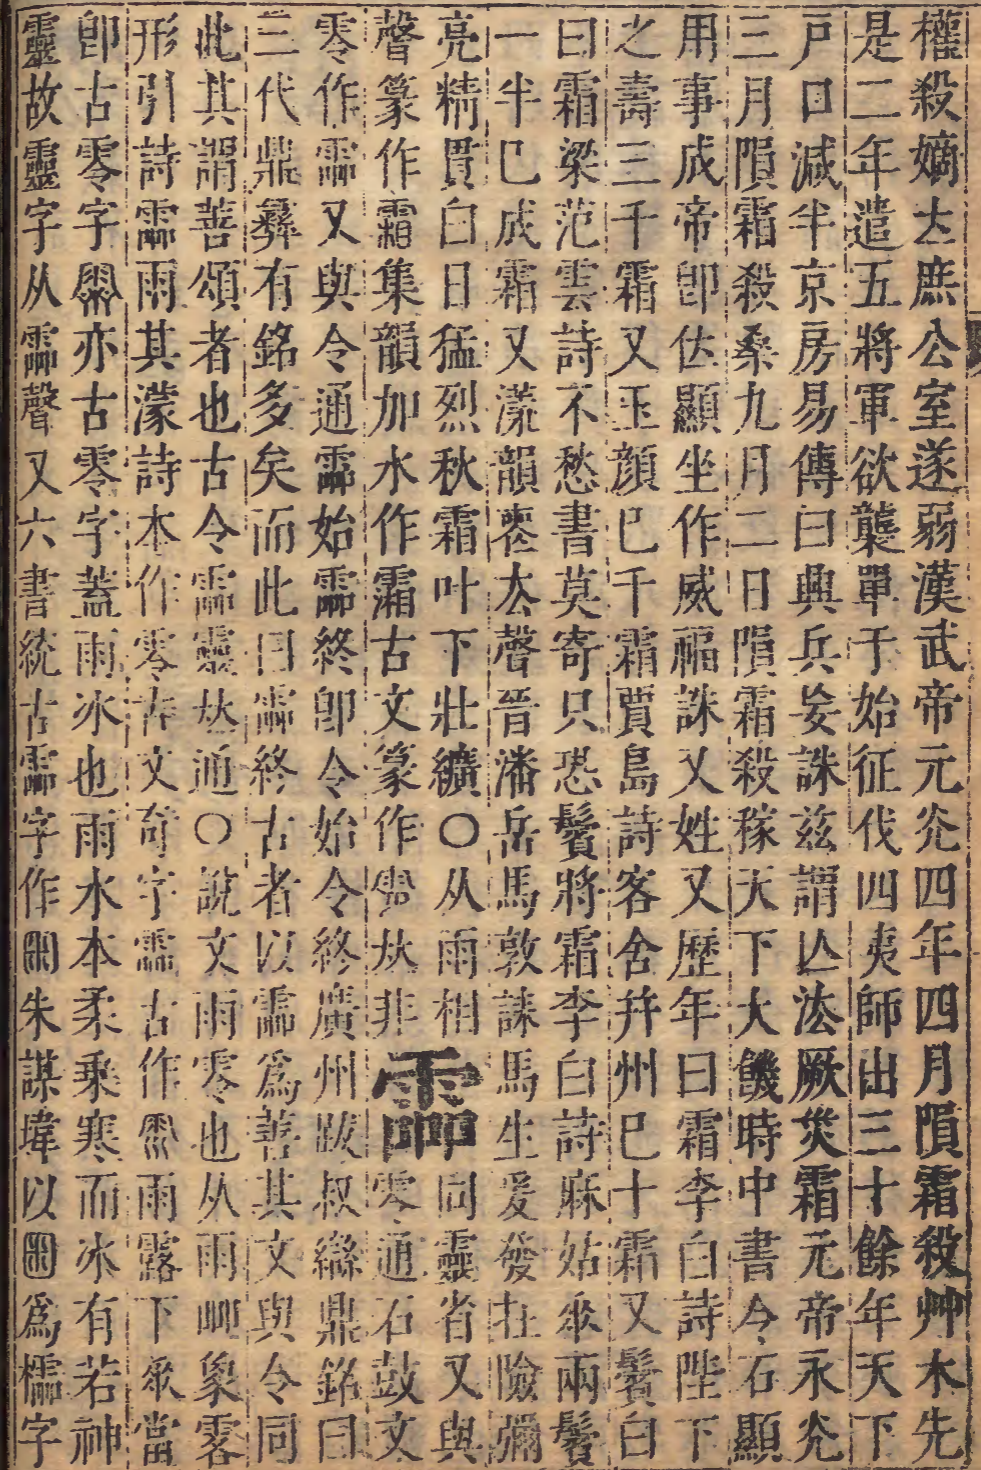 權殺嫡厺庶公室遂弱漢武帝元灮四年四月隕霜殺艸木先
是二年遣五將軍欲襲單于始征伐四夷師出三十餘年天下
戸口減半京房易傳曰興兵妄誅兹謂亾法厥災霜元帝永灮
三月隕霜殺桑九月二日隕霜殺稼天下大饑時中書令石顯
用事成帝卽位顯坐作威福誅又姓又歷年曰霜李白詩陛下
之壽三千霜又玉顔巳千霜賈島詩客舍并州巳十霜又鬢白
曰霜梁范雲詩不愁書莫寄只恐鬢將霜李白詩麻姑垂兩鬢
一半巳成霜又漾韻喪厺聲晉潘岳馬敦誄馬生爰發在險彌
亮精貫白日猛烈秋霜叶下壯纊〇从雨相
聲篆作霜集韻加水作灀古文篆作𠀤非
霝同靈省又與
零通石鼓文
零作霝又與令通霝始霝終卽令始令終廣州跋叔䜌鼎銘曰
三代鼎彝有銘多矣而此曰霝終古者以霝爲善其文與令同
此其謂善頌者也古令霝靈𠀤通〇說文雨零也从雨㗊象零
形引詩霝雨其濛詩本作零古文奇字霝古作雨露下垂當
卽古零字亦古零字蓋雨冰也雨水本柔乘寒而冰有若神
靈故靈字从霝聲又六書統古霝字作朱謀㙔以爲櫺字